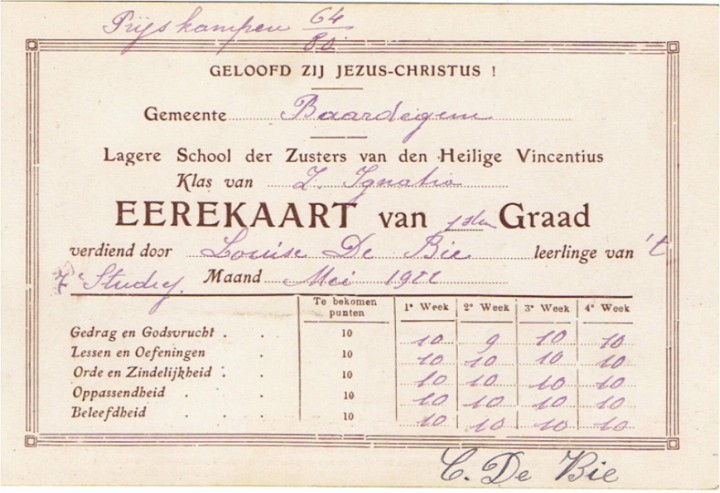 Prijskampen 64/80
GELOOFD ZIJ JEZUS-CHRISTUS !
Gemeente Baardegem
Lagere School der Zusters van den Heilige Vincentius
Klas van Z. Ignatia
EEREKAART van 1sten Graad
verdiend door Louise De Bie leerlinge van 't
7e Studiej. Maand Mei 1922
Te bekomen punten 1e Week 2e Week 3e Week 4e Week
Gedrag en Godsvrucht . . 10 10 9 10 10
Lessen en Oefeningen . 10 10 10 10 10
Orde en Zindelijkheid . . 10 10 10 10 10
Oppassendheid . . . 10 10 10 10 10
Beleefdheid . . . 10 10 10 10 10
C. De Bie